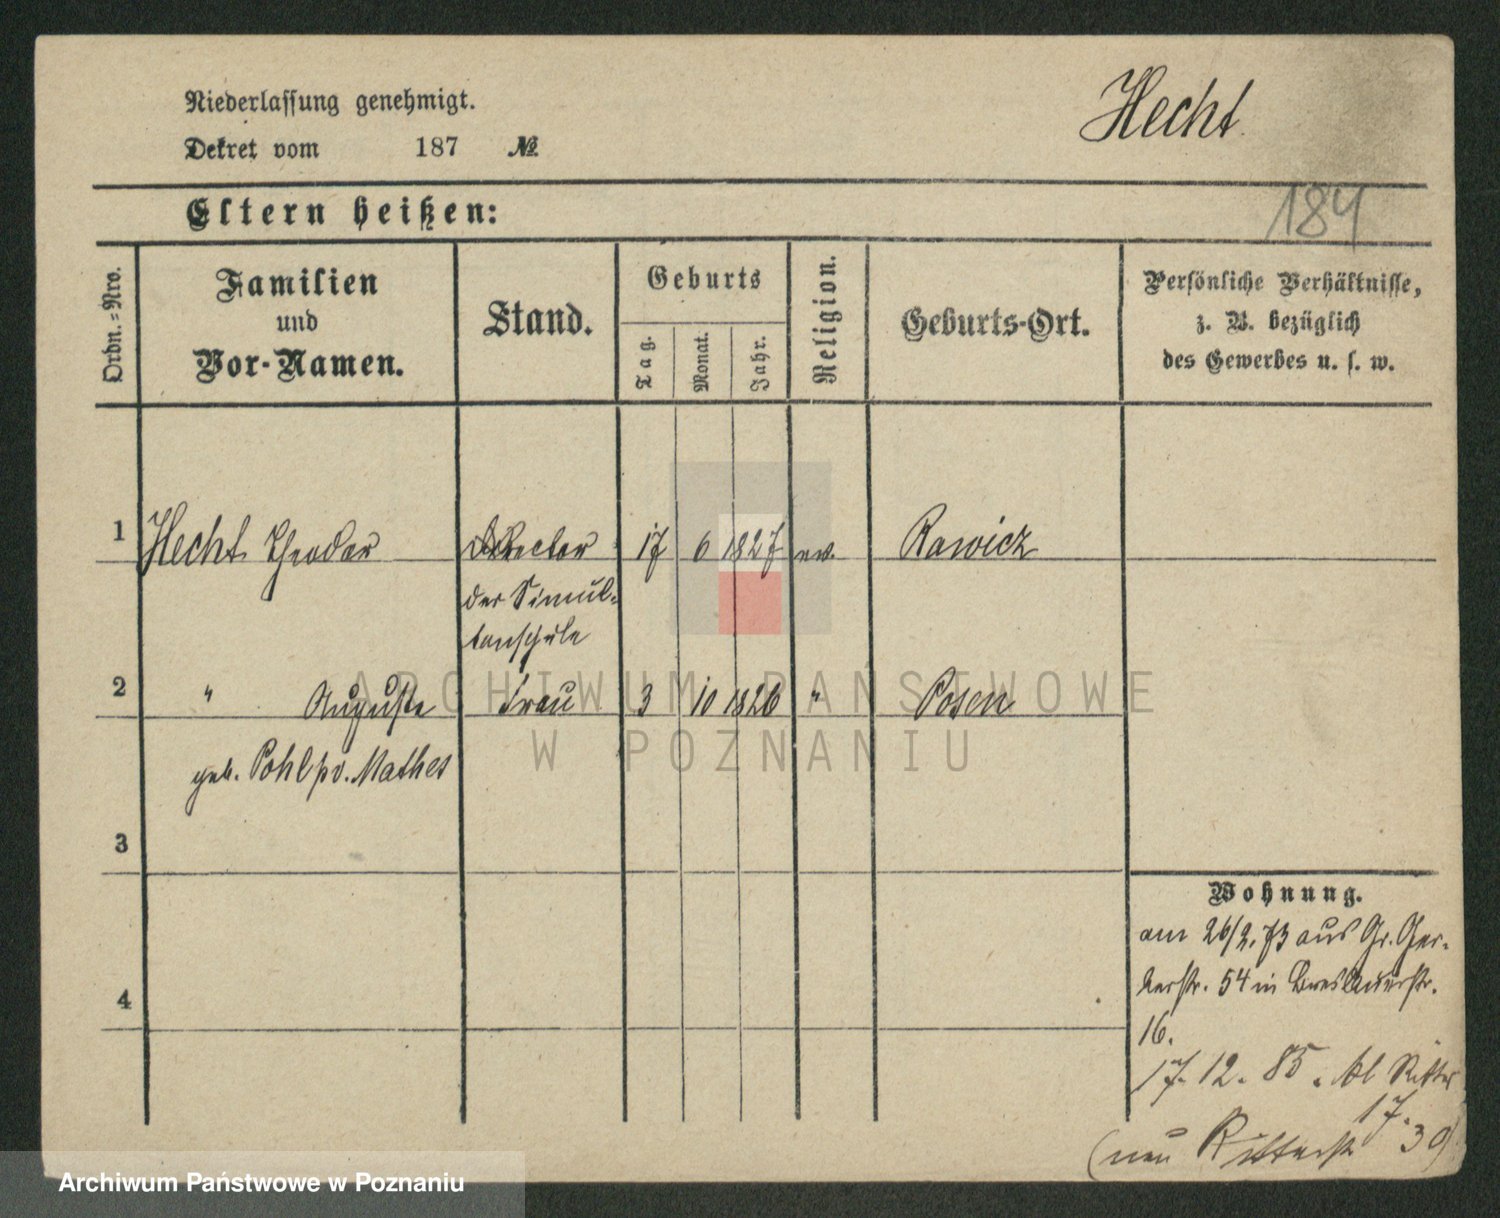 Niederlassung genehmigt.
Dekret vom 187 №
Hecht
184
Eltern heißen:
Ordn.=Nro.
Familien
und
Vor-Namen.
Stand.
Geburts
Tag.
Monat.
Jahr.
Religion.
Geburts-Ort.
Persönliche Verhältnisse,
z. B. bezüglich
des Gewerbes u. s. w.
1 Hecht Theodor Director 17 6 1827 ev. Rawicz
der Simul-
tanschule
2 " Auguste Frau 3 10 1826 " Posen
geb. Pohl pv. Mathes
3
4
Wohnung.
am 26/2. 73 aus Gr. Ger-
berstr. 54 in Breslauerstr.
16.
17. 12. 85. kl Ritter
17.
(neu Ritterstr 39)
ARCHIWUM PAŃSTWOWE
W POZNANIU
Archiwum Państwowe w Poznaniu